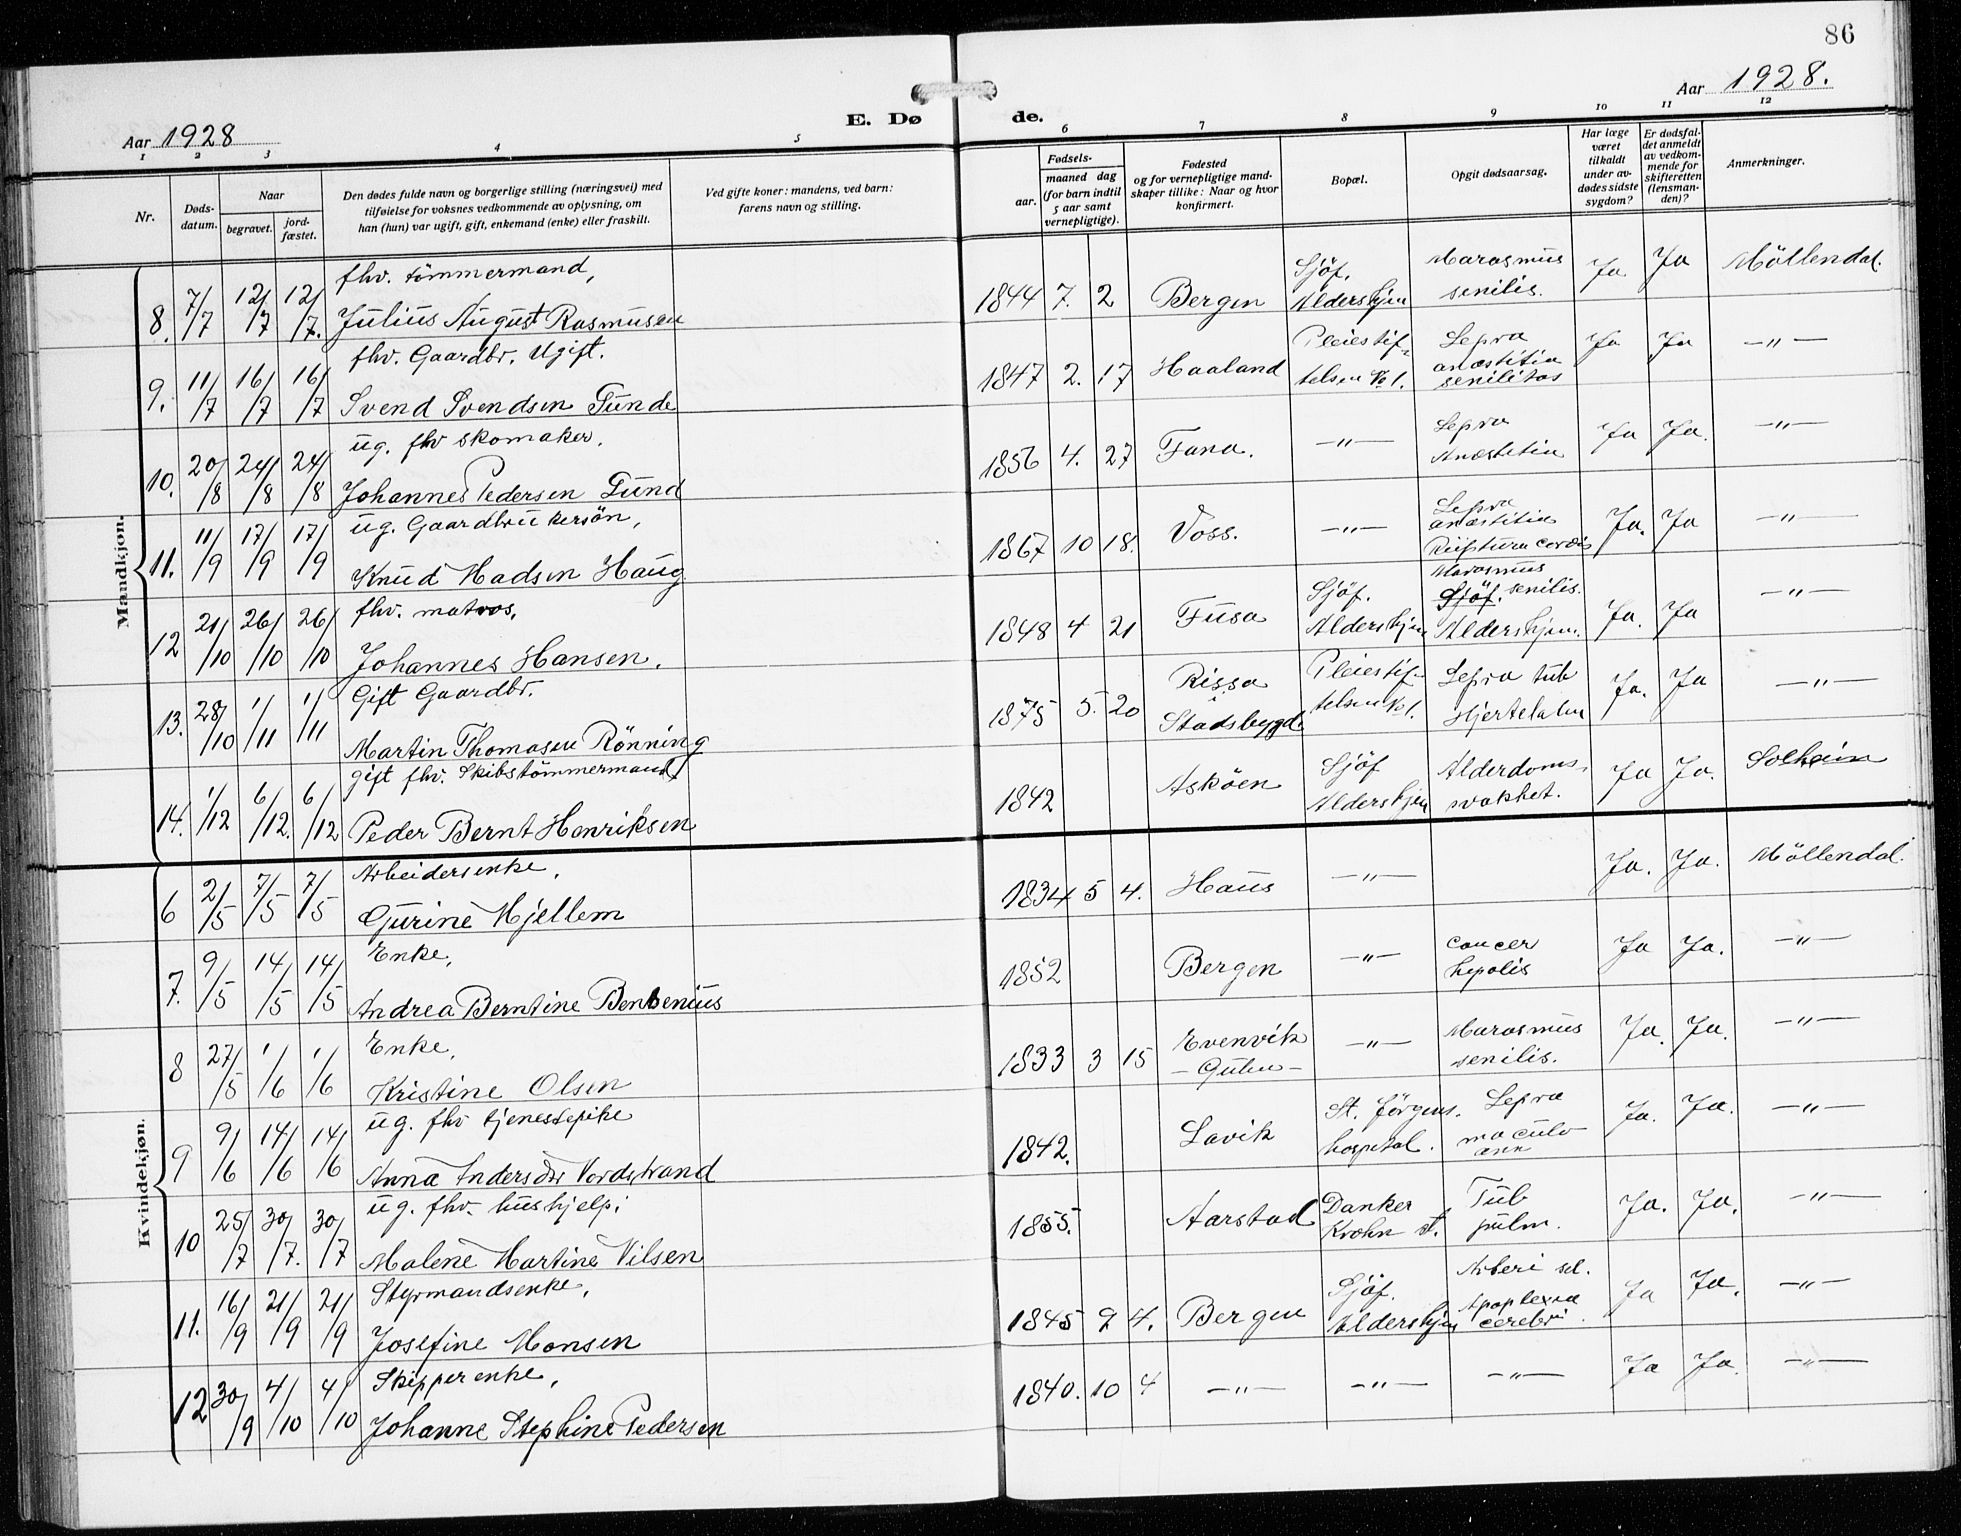 86
Aar 1928
E. Dø
de.
Aar 1928.
1 2 3 4 5 6 7 8 9 10 11 12
Nr.
Døds-
datum.
Naar
begravet.
jord-
fæstet.
Den dødes fulde navn og borgerlige stilling (næringsvei) med
tilføielse for voksnes vedkommende av oplysning, om
han (hun) var ugift, gift, enkemand (enke) eller fraskilt.
Ved gifte koner: mandens, ved barn:
farens navn og stilling.
Fødsels-
aar.
maaned dag
(for barn indtil
5 aar samt
vernepligtige).
Fødested
og for vernepligtige mand-
skaper tillike: Naar og hvor
konfirmert.
Bopæl.
Opgit dødsaarsag.
Har læge
været
tilkaldt
under av-
dødes sidste
sygdom?
Er dødsfal-
det anmeldt
av vedkom-
mende for
skifteretten
(lensman-
den)?
Anmerkninger.
Mandkjøn.
fhv. tömmermand, Sjöf. Marasmus
8. 7/7 12/7 12/7. Julius August Rasmusen 1844 7. 2 Bergen Aldershjem senilis. Ja Ja Möllendal.
fhv. Gaardbr. Ugift. Pleiestif- Lepra
9. 11/7 16/7 16/7 Svend Svendsen Tunde 1847 2. 17 Haaland telsen No 1. anæstitia senilitas Ja Ja —"—
ug. fhv skomaker. Lepra
10. 20/8 24/8 24/8 Johannes Pedersen Tund 1856 4. 27 Fana. —"— Anæstetia Ja Ja. —"—
ug. Gaardbrukersön, Lepra anæstitia
11. 11/9 17/9 17/9 Knud Madsen Haug 1867 10 18. Voss. —"— Ruptura cordis Ja. Ja —"—
fhv. matros. Sjöf. Marasmus Sjöf. senilis.
12 21/10 26/10 26/10 Johannes Hansen. 1848 4 21 Fusa Aldershjem Aldershjem. Ja. Ja —"—
Gift Gaardbr. Rissa Pleiestif- Lepra tub
13. 28/10 1/11 1/11 Martin Thomasen Rönning 1875 5. 20 Stadsbygd. telsen No 1. Hjertelam Ja. Ja —"—
gift fhv. Skibstömmermand Sjöf Alderdoms-
14. 1/12 6/12. 6/12 Peder Bernt Henriksen 1842 Asköen Aldershjem svakhet. Ja Ja. Solheim
Kvindekjøn.
Arbeidersenke,
6 2/5 7/5 7/5 Gurine Hjellem 1834 5 4. Haus —"— Ja. Ja. Möllendal.
Enke, cancer
7. 9/5 14/5 14/5 Andrea Berntine 1852 Bergen —"— hepatis Ja Ja. —"—
Enke, Evenvik Marasmus
8 27/5 1/6 1/6 Kristine Olsen 1833 3 15 —Gulen— —"— senilis. Ja. Ja. —"—
ug. fhv tjenestepike St. Jörgens. Lepra
9 9/6 14/6 14/6 Anna Andersdtr Nordstrand 1842. Lavik hospital. maculo ann Ja. Ja. —"—
ug. fhv. hushjelp; Danker Tub
10 25/7 30/7. 30/7 Malene Martine Nilsen 1855. Aarstad Krohn st. pulm. Ja. Ja. —"—
Styrmandsenke, Sjöf.
11. 16/9 21/9 21/9 Josefine Monsen 1845 9 4. Bergen Aldershjem Apoplexia cerebri. Ja Ja. —"—
Skipperenke,
12 30/9 4/10 4/10 Johanne Stephine Pedersen 1840. 10 4 —"— —"— —"— Ja Ja. —"—